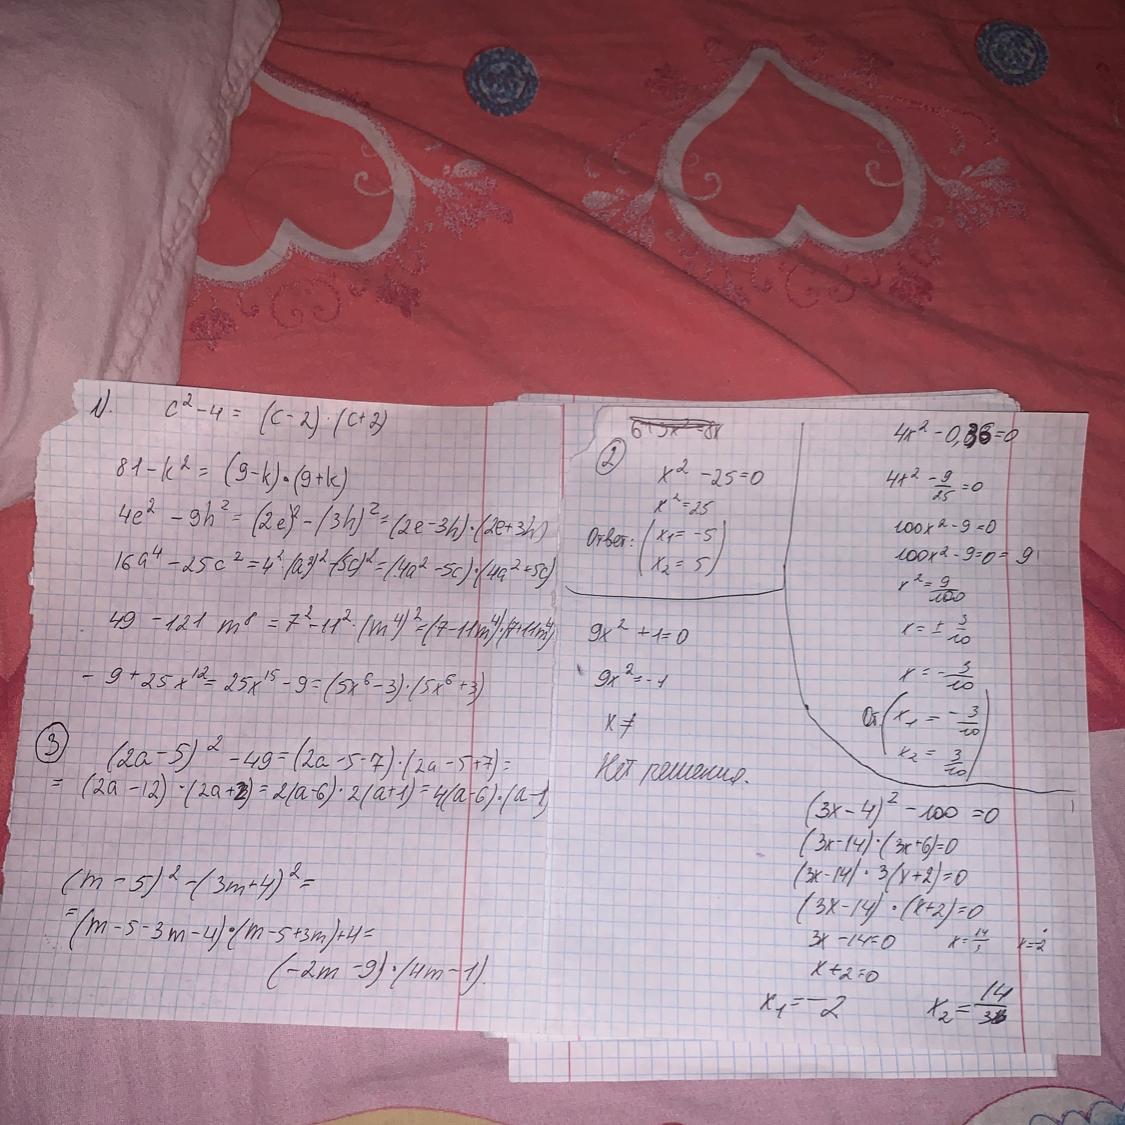 1). c² - 4 = (c - 2) · (c + 2)
81 - k² = (9 - k) · (9 + k)
4e² - 9h² = (2e)² - (3h)² = (2e - 3h) · (2e + 3h)
16a⁴ - 25c² = 4² · (a³)² - (5c)² = (4a² - 5c) · (4a² + 5c)
49 - 121 m⁸ = 7² - 11² · (m⁴)² = (7 - 11m⁴) · (7 + 11m⁴)
- 9 + 25x¹² = 25x¹⁵ - 9 = (5x⁶ - 3) · (5x⁶ + 3)
③ (2a - 5)² - 49 = (2a - 5 - 7) · (2a - 5 + 7) =
= (2a - 12) · (2a + 2) = 2(a - 6) · 2(a + 1) = 4(a - 6) · (a - 1)
(m - 5)² - (3m + 4)² =
= (m - 5 - 3m - 4) · (m - 5 + 3m) + 4 =
(-2m - 9) · (4m - 1).
②
x² - 25 = 0
x² = 25
Ответ: (x₁ = -5
x₂ = 5)
9x² + 1 = 0
9x² = -1
x ≠
Нет решения.
4x² - 0,36 = 0
4x² - 9/25 = 0
100x² - 9 = 0
100x² - 9 = 0 = 9
x² = 9/100
x = ± 3/10
x = - 3/10
От (x₁ = - 3/10
x₂ = 3/10)
(3x - 4)² - 100 = 0
(3x - 14) · (3x + 6) = 0
(3x - 14) · 3(x + 2) = 0
(3x - 14) · (x + 2) = 0
3x - 14 = 0 x = 14/3 x = -2
x + 2 = 0
x₁ = -2 x₂ = 14/3